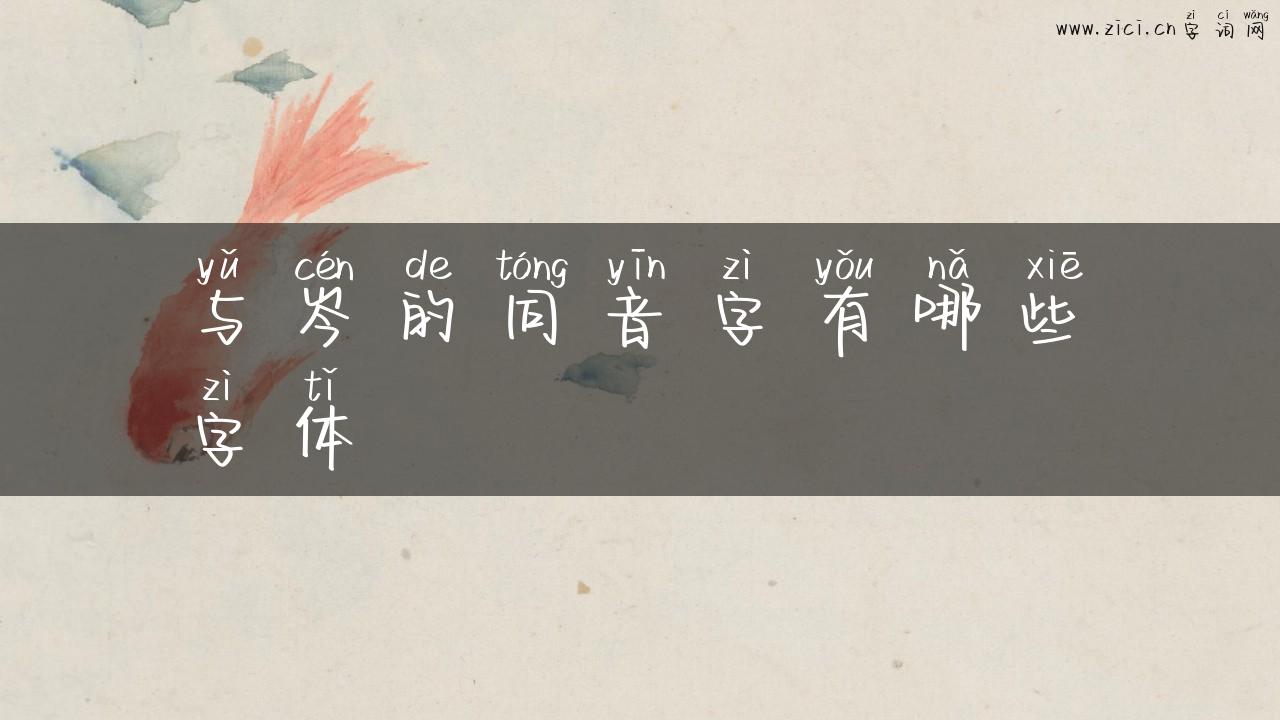 zì cí wǎng
www.zici.cn 字词网
yǔ cén de tóng yīn zì yǒu nǎ xiē
与岑的同音字有哪些
zì tǐ
字体